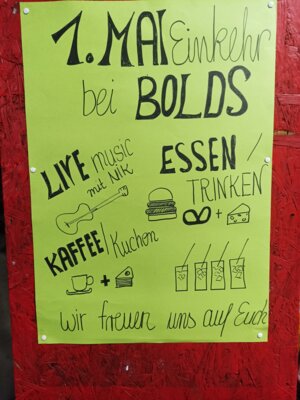 1. MAI Einkehr
bei BOLDS
LIVE music
mit NiK
ESSEN /
TRINKEN
KAFFEE / Kuchen
wir freuen uns auf Euch